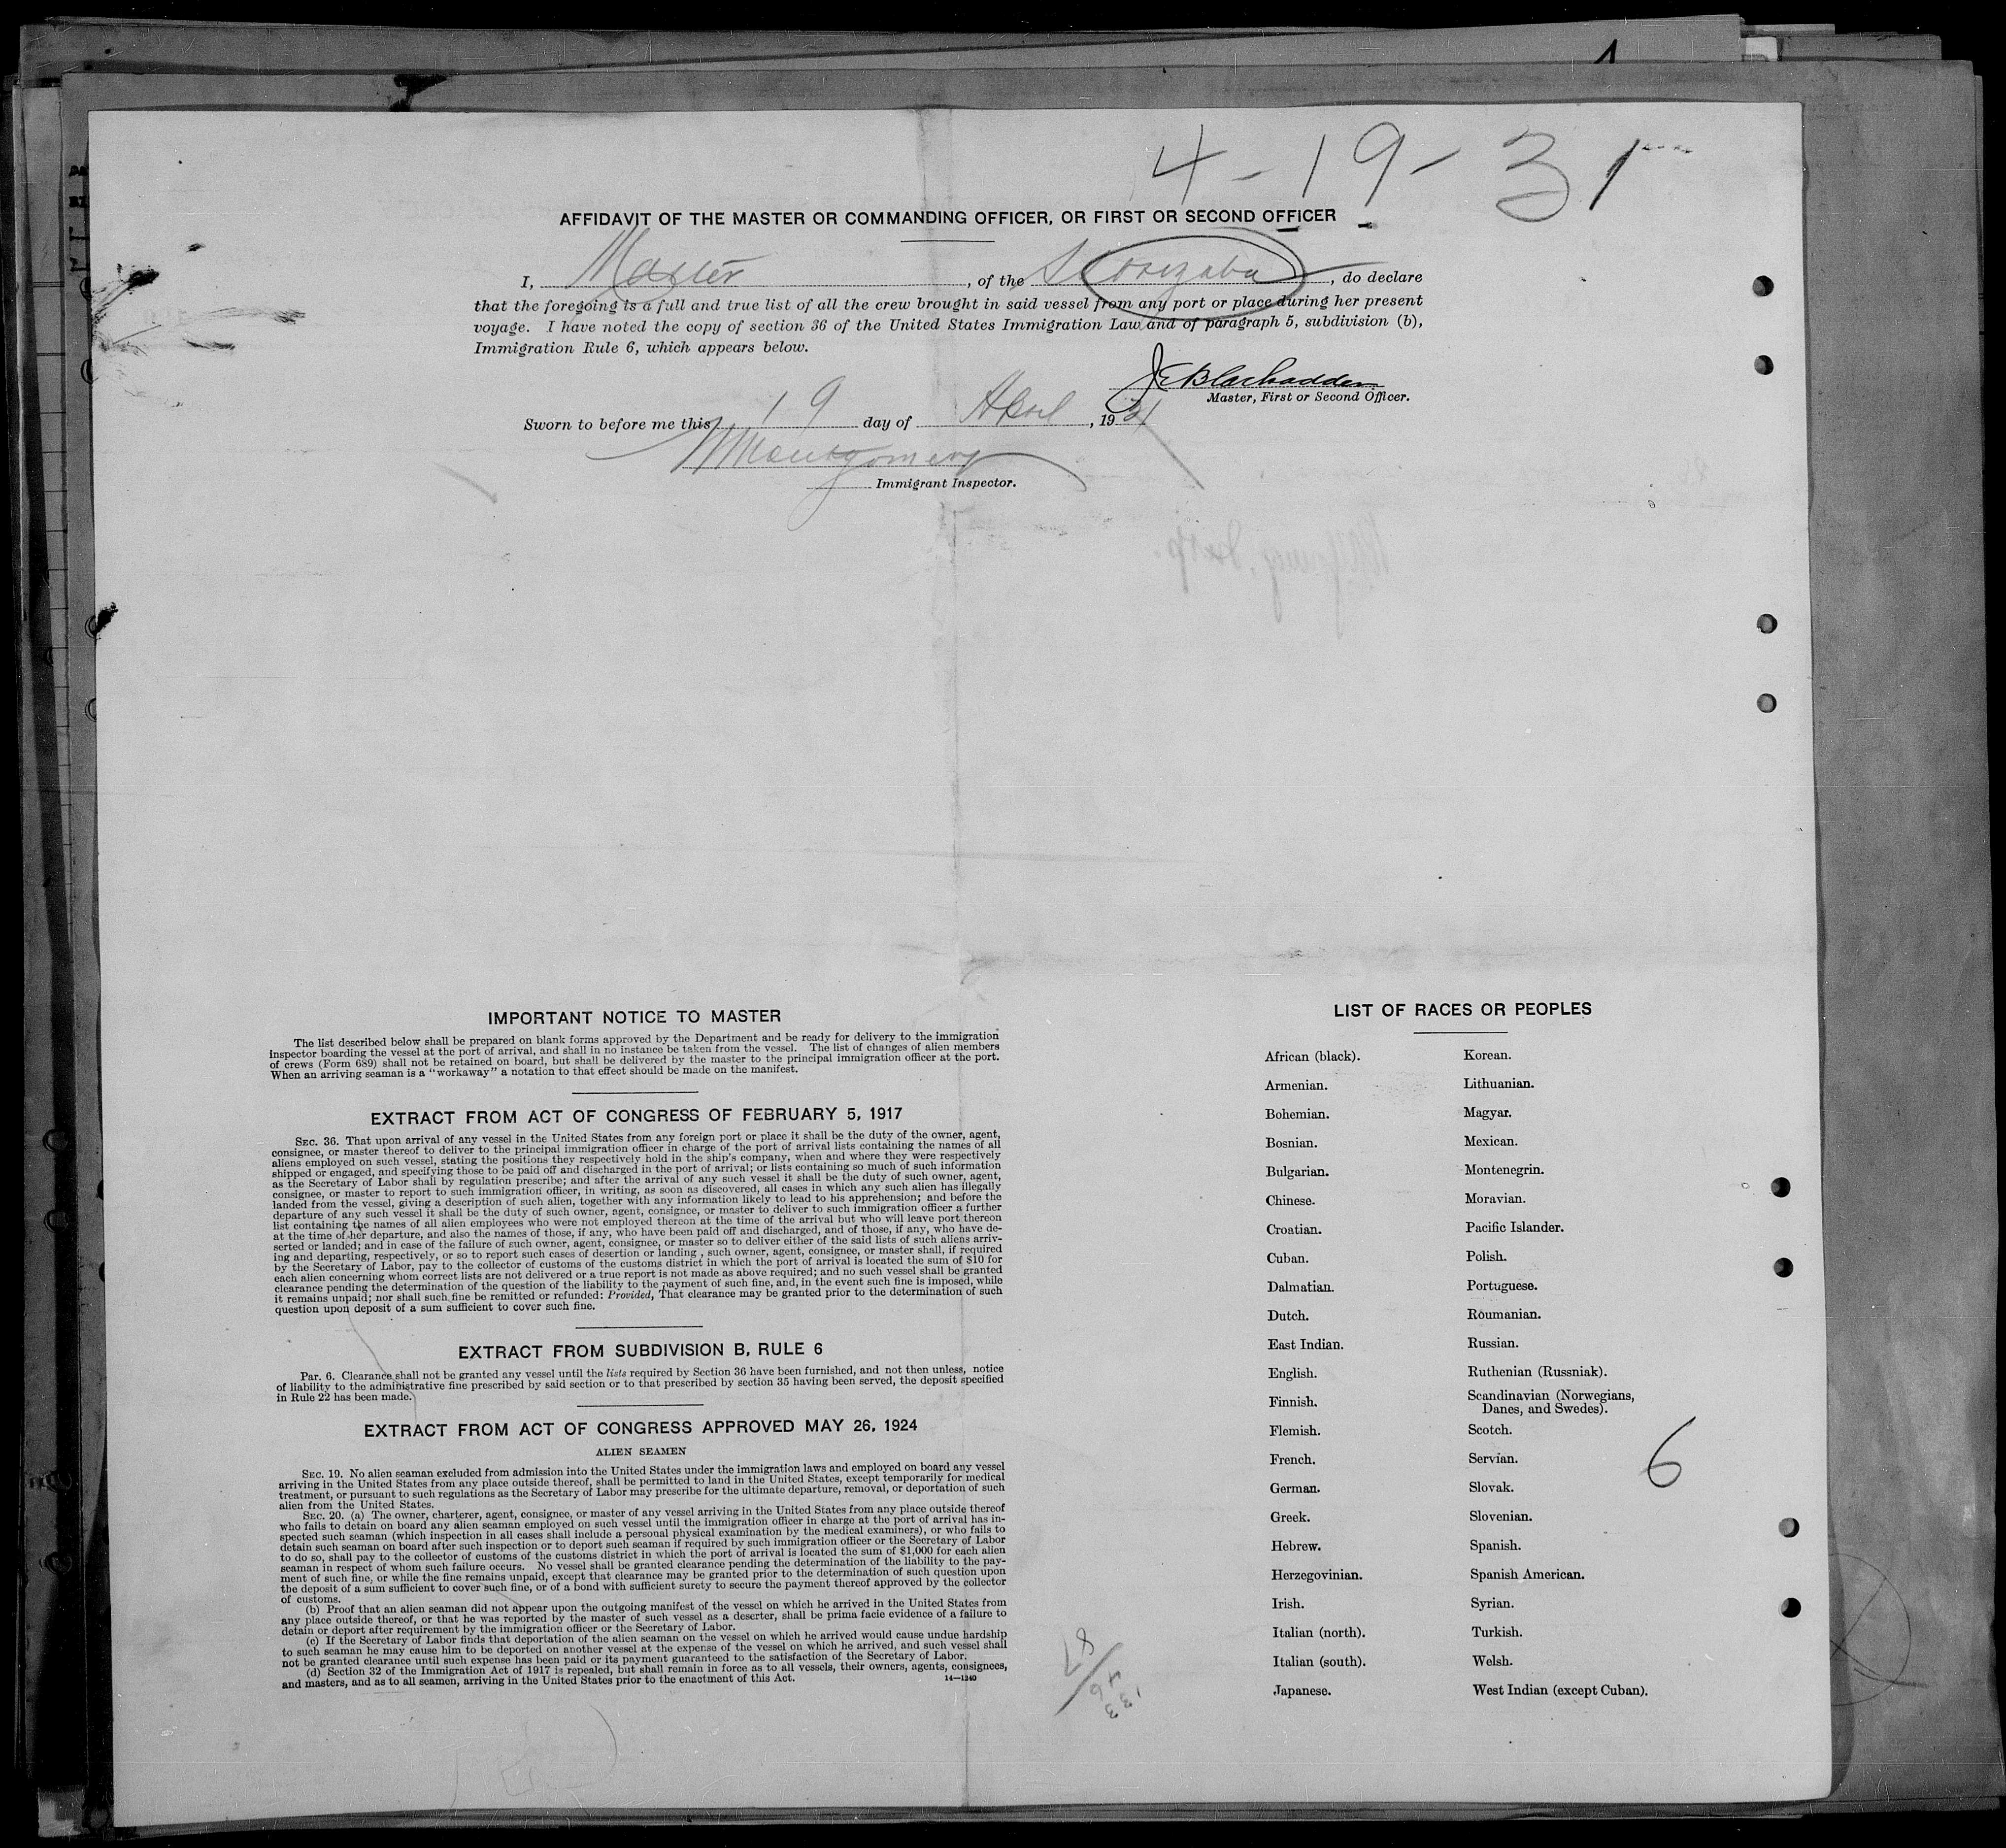 4-19-31
AFFIDAVIT OF THE MASTER OR COMMANDING OFFICER, OR FIRST OR SECOND OFFICER
I, Master, of the SS Orizaba, do declare
that the foregoing is a full and true list of all the crew brought in said vessel from any port or place during her present
voyage. I have noted the copy of section 36 of the United States Immigration Law and of paragraph 5, subdivision (b),
Immigration Rule 6, which appears below.
Master, First or Second Officer.
Sworn to before me this 19 day of April, 1931
Montgomery
Immigrant Inspector.
IMPORTANT NOTICE TO MASTER
The list described below shall be prepared on blank forms approved by the Department and be ready for delivery to the immigration
inspector boarding the vessel at the port of arrival, and shall in no instance be taken from the vessel. The list of changes of alien members
of crews (Form 689) shall not be retained on board, but shall be delivered by the master to the principal immigration officer at the port.
When an arriving seaman is a "workaway" a notation to that effect should be made on the manifest.
EXTRACT FROM ACT OF CONGRESS OF FEBRUARY 5, 1917
SEC. 36. That upon arrival of any vessel in the United States from any foreign port or place it shall be the duty of the owner, agent,
consignee, or master thereof to deliver to the principal immigration officer in charge of the port of arrival lists containing the names of all
aliens employed on such vessel, stating the positions they respectively hold in the ship's company, when and where they were respectively
shipped or engaged, and specifying those to be paid off and discharged in the port of arrival; or lists containing so much of such information
as the Secretary of Labor shall by regulation prescribe; and after the arrival of any such vessel it shall be the duty of such owner, agent,
consignee, or master to report to such immigration officer, in writing, as soon as discovered, all cases in which any such alien has illegally
landed from the vessel, giving a description of such alien, together with any information likely to lead to his apprehension; and before the
departure of any such vessel it shall be the duty of such owner, agent, consignee, or master to deliver to such immigration officer a further
list containing the names of all alien employees who were not employed thereon at the time of the arrival but who will leave port thereon
at the time of her departure, and also the names of those, if any, who have been paid off and discharged, and of those, if any, who have de-
serted or landed; and in case of the failure of such owner, agent, consignee, or master so to deliver either of the said lists of such aliens arriv-
ing and departing, respectively, or so to report such cases of desertion or landing, such owner, agent, consignee, or master shall, if required
by the Secretary of Labor, pay to the collector of customs of the customs district in which the port of arrival is located the sum of $10 for
each alien concerning whom correct lists are not delivered or a true report is not made as above required; and no such vessel shall be granted
clearance pending the determination of the question of the liability to the payment of such fine, and, in the event such fine is imposed, while
it remains unpaid; nor shall such fine be remitted or refunded: Provided, That clearance may be granted prior to the determination of such
question upon deposit of a sum sufficient to cover such fine.
EXTRACT FROM SUBDIVISION B, RULE 6
Par. 6. Clearance shall not be granted any vessel until the lists required by Section 36 have been furnished, and not then unless, notice
of liability to the administrative fine prescribed by said section or to that prescribed by section 35 having been served, the deposit specified
in Rule 22 has been made.
EXTRACT FROM ACT OF CONGRESS APPROVED MAY 26, 1924
ALIEN SEAMEN
SEC. 19. No alien seaman excluded from admission into the United States under the immigration laws and employed on board any vessel
arriving in the United States from any place outside thereof, shall be permitted to land in the United States, except temporarily for medical
treatment, or pursuant to such regulations as the Secretary of Labor may prescribe for the ultimate departure, removal, or deportation of such
alien from the United States.
SEC. 20. (a) The owner, charterer, agent, consignee, or master of any vessel arriving in the United States from any place outside thereof
who fails to detain on board any alien seaman employed on such vessel until the immigration officer in charge at the port of arrival has in-
spected such seaman (which inspection in all cases shall include a personal physical examination by the medical examiners), or who fails to
detain such seaman on board after such inspection or to deport such seaman if required by such immigration officer or the Secretary of Labor
to do so, shall pay to the collector of customs of the customs district in which the port of arrival is located the sum of $1,000 for each alien
seaman in respect of whom such failure occurs. No vessel shall be granted clearance pending the determination of the liability to the pay-
ment of such fine, or while the fine remains unpaid, except that clearance may be granted prior to the determination of such question upon
the deposit of a sum sufficient to cover such fine, or of a bond with sufficient surety to secure the payment thereof approved by the collector
of customs.
(b) Proof that an alien seaman did not appear upon the outgoing manifest of the vessel on which he arrived in the United States from
any place outside thereof, or that he was reported by the master of such vessel as a deserter, shall be prima facie evidence of a failure to
detain or deport after requirement by the immigration officer or the Secretary of Labor.
(c) If the Secretary of Labor finds that deportation of the alien seaman on the vessel on which he arrived would cause undue hardship
to such seaman he may cause him to be deported on another vessel at the expense of the vessel on which he arrived, and such vessel shall
not be granted clearance until such expense has been paid or its payment guaranteed to the satisfaction of the Secretary of Labor.
(d) Section 32 of the Immigration Act of 1917 is repealed, but shall remain in force as to all vessels, their owners, agents, consignees,
and masters, and as to all seamen, arriving in the United States prior to the enactment of this Act.
14—1240
LIST OF RACES OR PEOPLES
African (black).
Armenian.
Bohemian.
Bosnian.
Bulgarian.
Chinese.
Croatian.
Cuban.
Dalmatian.
Dutch.
East Indian.
English.
Finnish.
Flemish.
French.
German.
Greek.
Hebrew.
Herzegovinian.
Irish.
Italian (north).
Italian (south).
Japanese.
Korean.
Lithuanian.
Magyar.
Mexican.
Montenegrin.
Moravian.
Pacific Islander.
Polish.
Portuguese.
Roumanian.
Russian.
Ruthenian (Russniak).
Scandinavian (Norwegians,
Danes, and Swedes).
Scotch.
Servian.
Slovak.
Slovenian.
Spanish.
Spanish American.
Syrian.
Turkish.
Welsh.
West Indian (except Cuban).
6
87
46
133